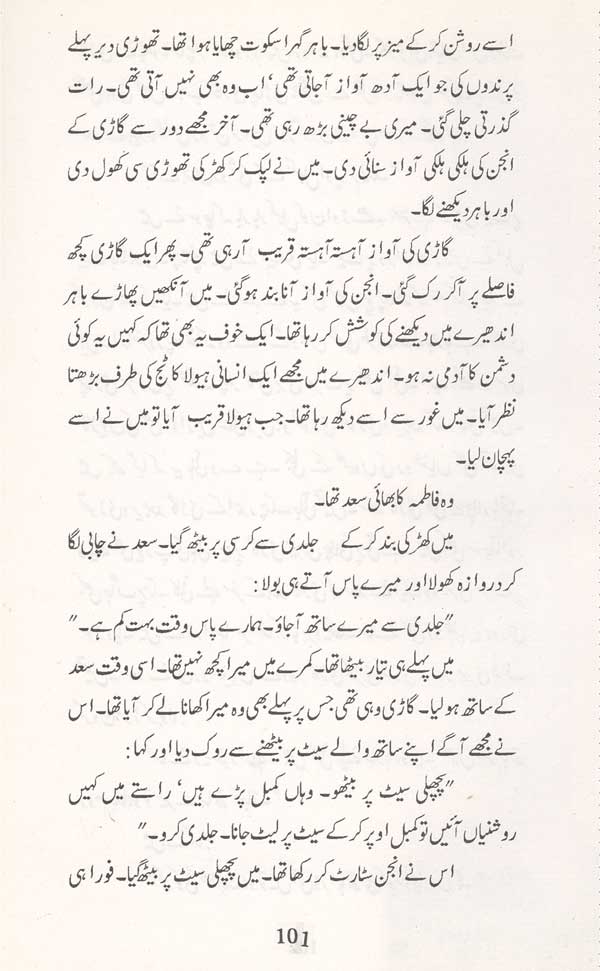 اسے روشن کر کے میز پر لگا دیا۔ باہر گہرا سکوت چھایا ہوا تھا۔ تھوڑی دیر پہلے
پرندوں کی جو ایک آدھ آواز آ جاتی تھی‘ اب وہ بھی نہیں آتی تھی۔ رات
گذرتی چلی گئی۔ میری بے چینی بڑھ رہی تھی۔ آخر مجھے دور سے گاڑی کے
انجن کی ہلکی ہلکی آواز سنائی دی۔ میں نے لپک کر کھڑکی تھوڑی سی کھول دی
اور باہر دیکھنے لگا۔
گاڑی کی آواز آہستہ آہستہ قریب آ رہی تھی۔ پھر ایک گاڑی کچھ
فاصلے پر آ کر رک گئی۔ انجن کی آواز آنا بند ہو گئی۔ میں آنکھیں پھاڑے باہر
اندھیرے میں دیکھنے کی کوشش کر رہا تھا۔ ایک خوف یہ بھی تھا کہ کہیں یہ کوئی
دشمن کا آدمی نہ ہو۔ اندھیرے میں مجھے ایک انسانی ہیولا کاٹج کی طرف بڑھتا
نظر آیا۔ میں غور سے اسے دیکھ رہا تھا۔ جب ہیولا قریب آیا تو میں نے اسے
پہچان لیا۔
وہ فاطمہ کا بھائی سعد تھا۔
میں کھڑکی بند کر کے جلدی سے کرسی پر بیٹھ گیا۔ سعد نے چابی لگا
کر دروازہ کھولا اور میرے پاس آتے ہی بولا:
"جلدی سے میرے ساتھ آ جاؤ۔ ہمارے پاس وقت بہت کم ہے۔"
میں پہلے ہی تیار بیٹھا تھا۔ کمرے میں میرا کچھ نہیں تھا۔ اسی وقت سعد
کے ساتھ ہو لیا۔ گاڑی وہی تھی جس پر پہلے بھی وہ میرا کھانا لے کر آیا تھا۔ اس
نے مجھے آگے اپنے ساتھ والے سیٹ پر بیٹھنے سے روک دیا اور کہا:
"پچھلی سیٹ پر بیٹھو۔ وہاں کمبل پڑے ہیں‘ راستے میں کہیں
روشنیاں آئیں تو کمبل اوپر کر کے سیٹ پر لیٹ جانا۔ جلدی کرو۔"
اس نے انجن سٹارٹ کر رکھا تھا۔ میں پچھلی سیٹ پر بیٹھ گیا۔ فورا ہی
101